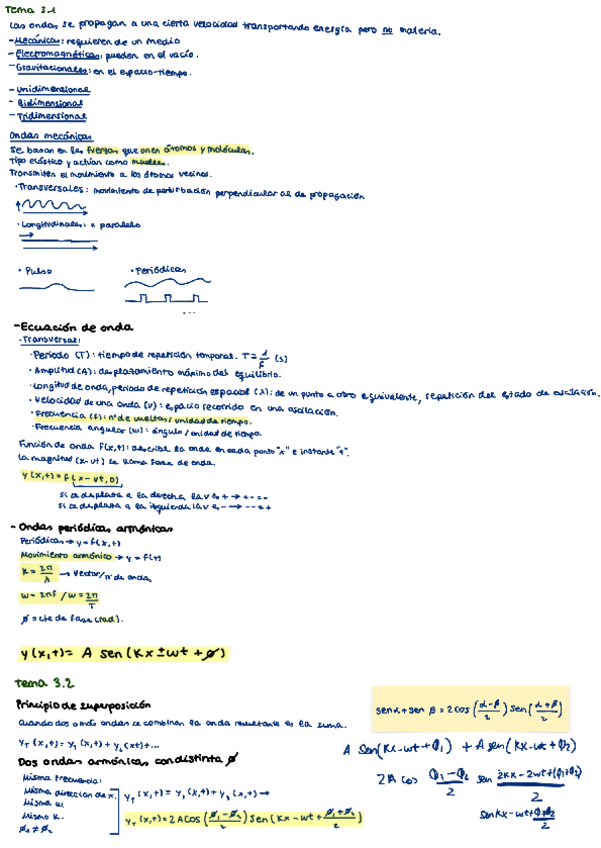 Tema 3.1
Las ondas, se propagan a una cierta velocidad transportando energía pero no materia.
- Mecánicas: requieren de un medio
- Electromagnéticas: pueden en el vacío.
- Gravitacionales: en el espacio-tiempo.
- Unidimensional
- Bidimensional
- Tridimensional
Ondas mecánicas
Se basan en las fuerzas que unen átomos y moléculas.
Tipo elástico y actúan como muelles.
Transmiten el movimiento a los átomos vecinos.
· Transversales: movimiento de perturbación perpendicular al de propagación
· Longitudinales: " paralelo
· Pulso · Periódicas
...
- Ecuación de onda
· Transversal:
· Período (T): tiempo de repetición temporal. T = 1/f (s)
· Amplitud (A): desplazamiento máximo del equilibrio.
· Longitud de onda, período de repetición espacial (λ): de un punto a otro equivalente, repetición del estado de oscilación.
· Velocidad de una onda (v): espacio recorrido en una oscilación.
· Frecuencia (f): nº de vueltas / unidad de tiempo.
· Frecuencia angular (ω): ángulo / unidad de tiempo.
Función de onda f(x,t): describe la onda en cada punto "x" e instante "t".
La magnitud (x-vt) se llama fase de onda.
y (x,t) = f(x - vt, 0)
si se desplaza a la derecha la v es + → + - = -
si se desplaza a la izquierda la v es - → - - = +
- Ondas periódicas armónicas
Periódicas → y = f(x,t)
Movimiento armónico → y = f(t)
K = 2π/λ → Vector/nº de onda,
ω = 2πf / ω = 2π/T
φ = cte de fase (rad).
y(x,t) = A sen (Kx ± ωt + φ)
Tema 3.2
Principio de superposición
Cuando dos o más ondas se combinan la onda resultante es la suma.
y_T (x,t) = y₁ (x,t) + y₂ (x,t) + ...
Dos ondas armónicas, con distinta φ
Misma frecuencia:
Misma dirección de x.
Misma ω.
Misma K.
φ₁ ≠ φ₂
y_T (x,t) = y₁ (x,t) + y₂ (x,t) →
y_T (x,t) = 2A cos ((φ₁ - φ₂)/2) sen (Kx - ωt + (φ₁ + φ₂)/2)
sen α + sen β = 2 cos ((α - β)/2) sen ((α + β)/2)
A sen(Kx - ωt + φ₁) + A sen(Kx - ωt + φ₂)
2A cos (φ₁ - φ₂)/2 sen (2Kx - 2ωt + (φ₁ + φ₂))/2
sen Kx - ωt + (φ₁+φ₂)/2